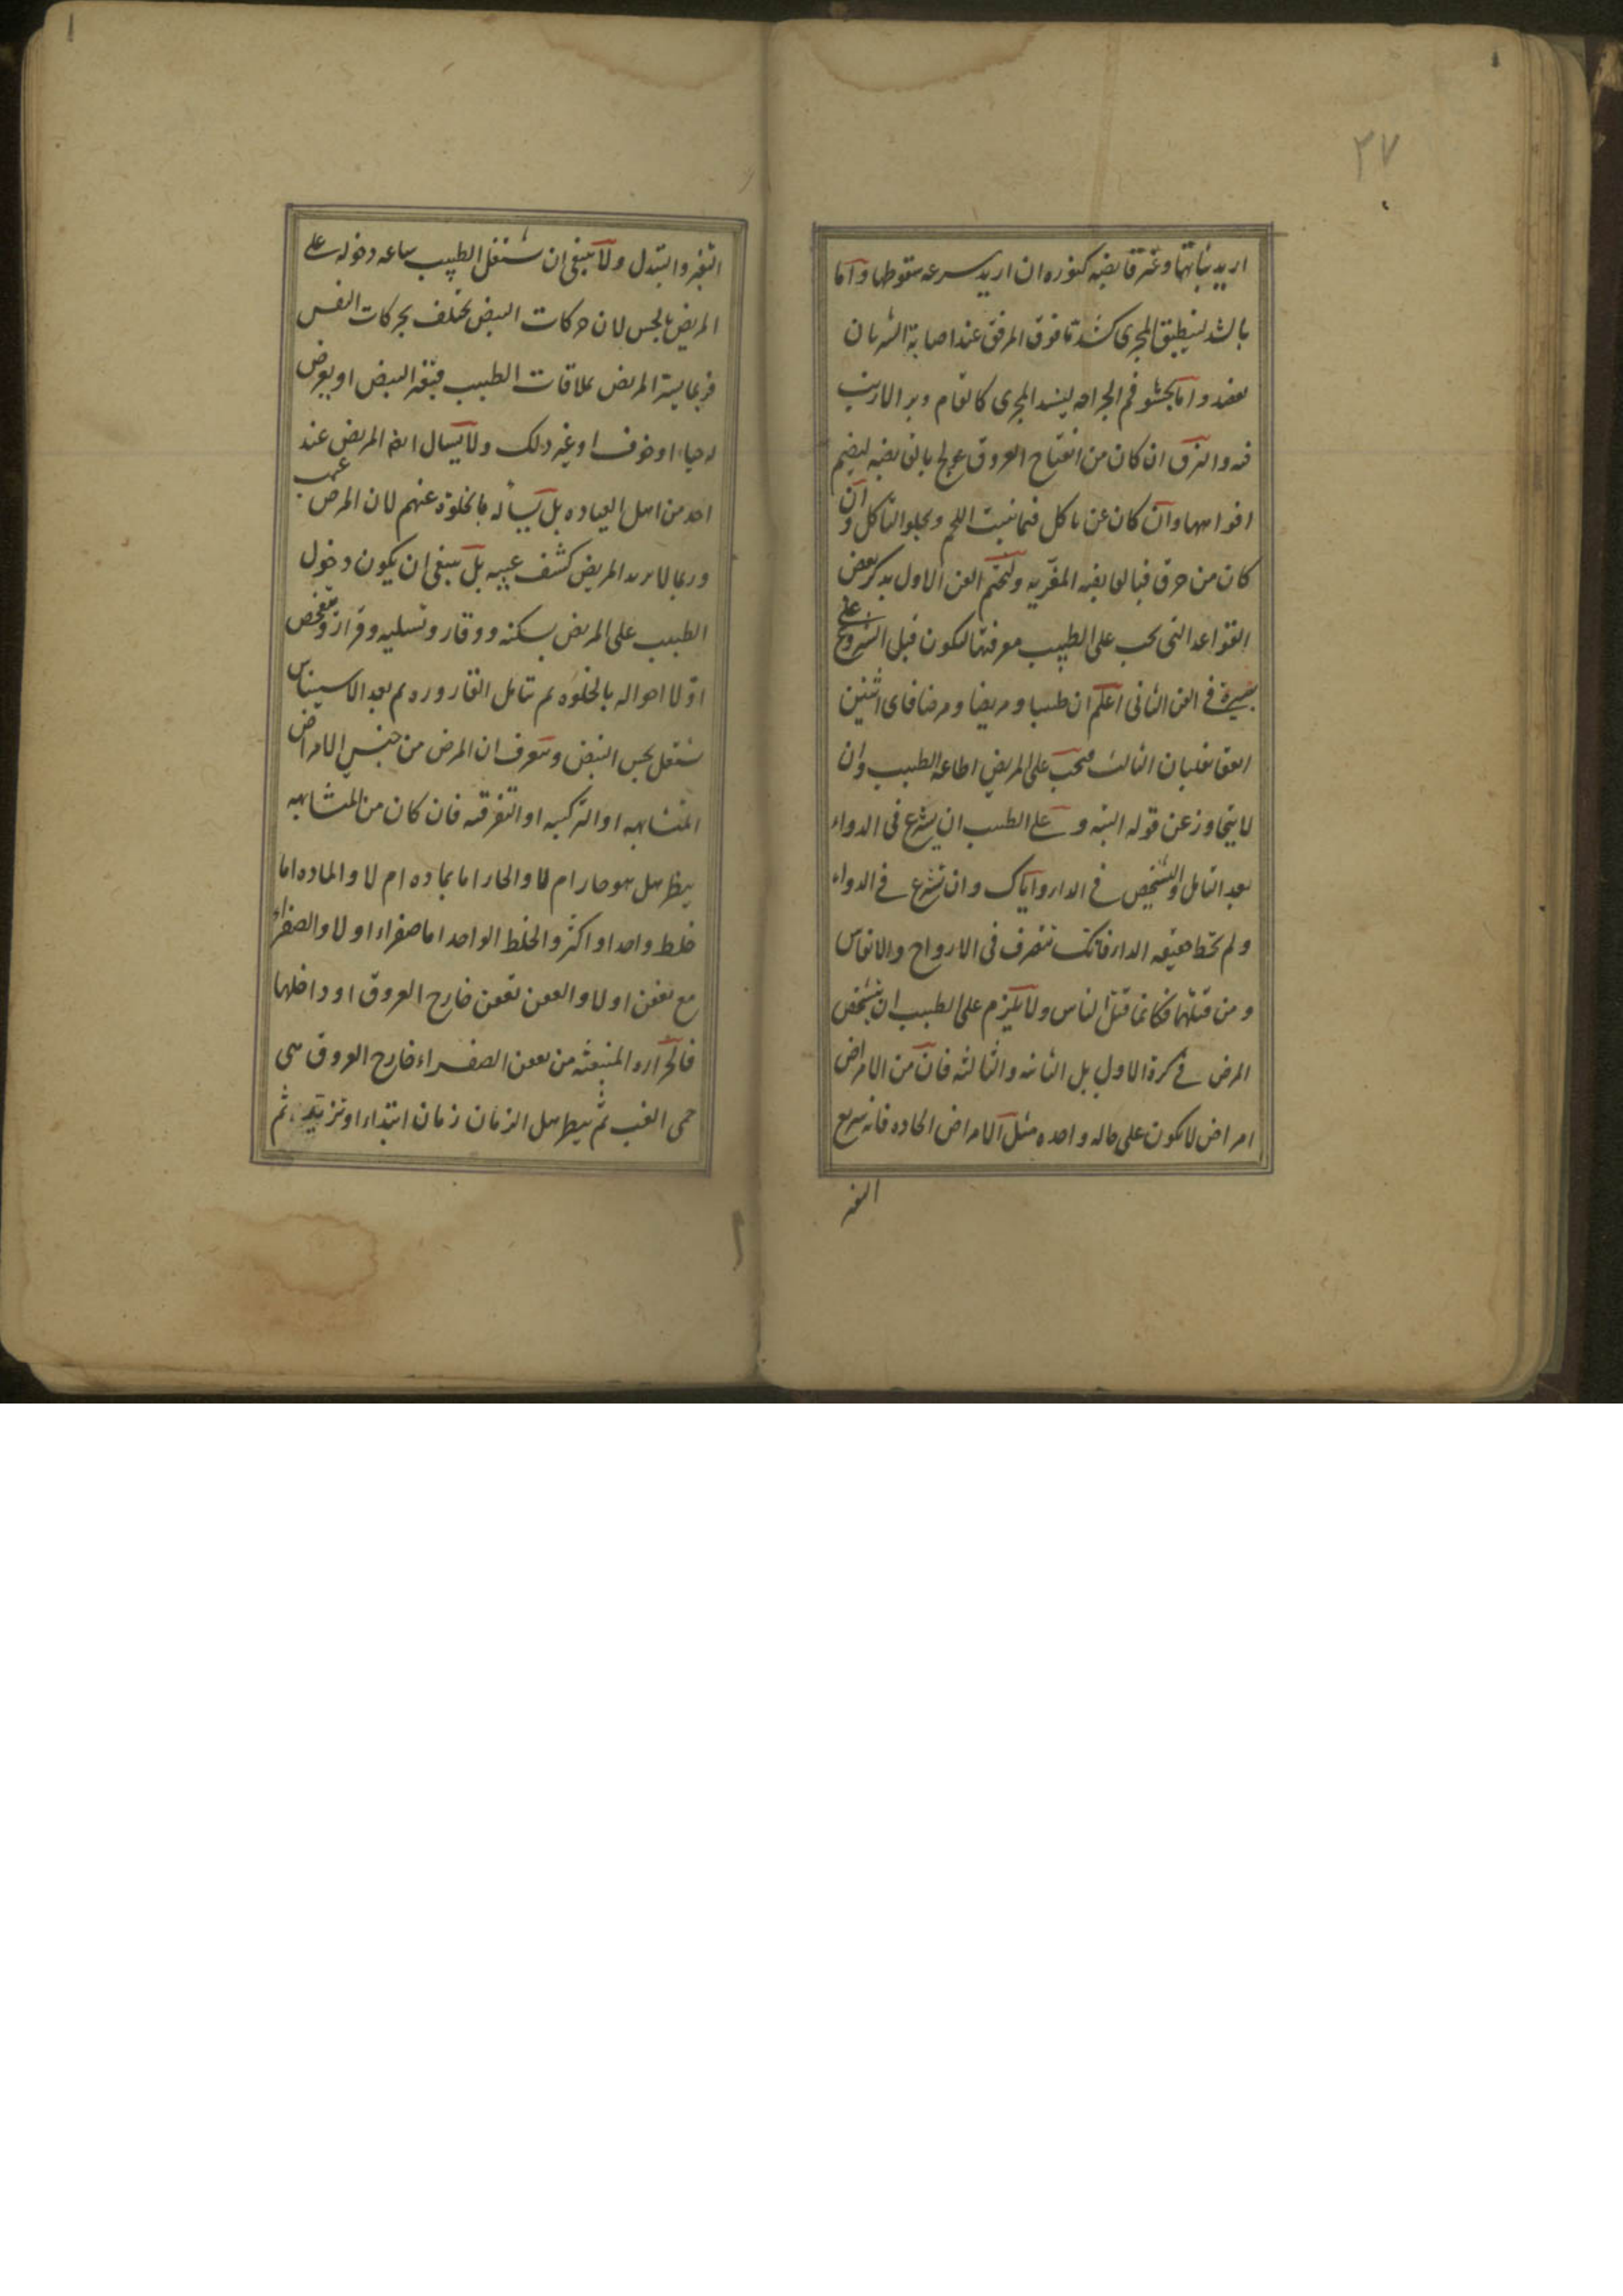 ٣٧
اريد نباتها وغير قابضة كنوره ان اريد سرعه سقوطها واما
بالشد لينطبق المجرى كشد ما فوق المرفق عند اصابة الشريان
بعضد واما بحشو فم الجراحه ليسد المجرى كالقام ووبر الارنب
فيه والنزف ان كان من انفتاح العروق عولج بالقابضه ليضم
افواهها وان كان عن تاكل فبما ينبت اللحم ويجلو التاكل وان
كان من حرق فبالقابضه المغريه ولنختم الفن الاول بذكر بعض
القواعد التى يجب على الطبيب معرفتها لتكون قبل الشروع على
بصيرة فى الفن الثانى اعلم ان طبيبا ومريضا ومرضا فاى اثنين
اتفقا يغلبان الثالث فيجب على المريض اطاعه الطبيب وان
لا يتجاوز عن قوله البته و على الطبيب ان يشرع فى الدواء
بعد التامل والتشخيص فى الداء واياك وان تشرع فى الدواء
ولم تحط حقيقه الداء فانك تتصرف فى الارواح والانفاس
ومن قتلها فكانما قتل الناس ولا يلزم على الطبيب ان يتشخص
المرض فى كرة الاول بل الثانيه والثالثه فان من الامراض
امراض لا تكون على حاله واحده مثل الامراض الحاده فانه سريع
التغير
التغير والتبدل ولا ينبغى ان يشتغل الطبيب ساعه دخوله على
المريض بالجس لان حركات النبض تختلف بحركات النفس
فربما يسر المريض بملاقات الطبيب فيتغير النبض او يعرض
له حياء او خوف او غير ذلك ولا يسال ايضا المريض عند
احد من اهل العياده بل يساله بالخلوة عنهم لان المرض عيب
وربما لا يريد المريض كشف عيبه بل ينبغى ان يكون دخول
الطبيب على المريض بسكنه ووقار وتسليه وقرار ويتفحص
اولا احواله بالخلوه ثم يتامل القاروره ثم بعد الاستيناس
يشتغل بجس النبض ويتعرف ان المرض من جنس الامراض
المتشابهه او التركيبيه او التفرقيه فان كان من المتشابهه
ينظر هل هو حار ام لا والحار اما بماده ام لا والماده اما
خلط واحد او اكثر والخلط الواحد اما صفراء او لا والصفراء
مع تعفن او لا والتعفن تعفن خارج العروق او داخلها
فالحراره المنبعثه من تعفن الصفراء خارج العروق هى
حمى الغب ثم ينظر هل الزمان زمان ابتداء او تزيد ثم